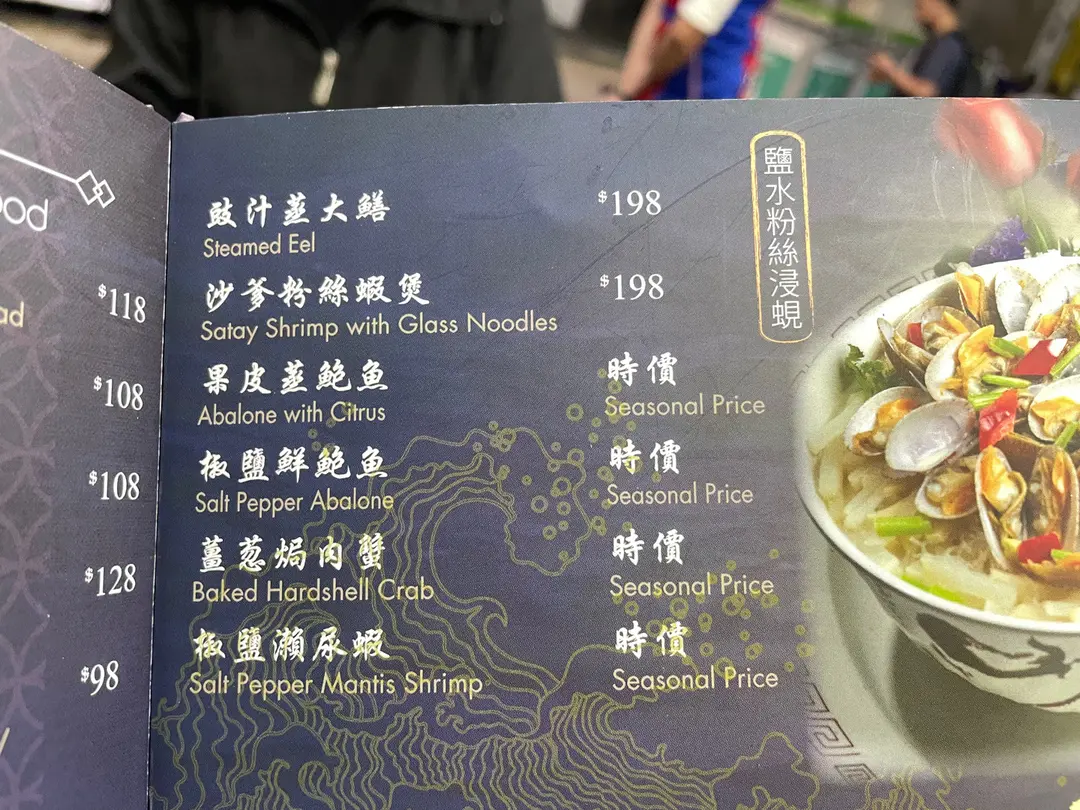 ood
ad
$118
$108
$108
$128
$98
豉汁蒸大鱔
$198
Steamed Eel
沙爹粉絲蝦煲
$198
Satay Shrimp with Glass Noodles
果皮蒸鮑魚
時價
Abalone with Citrus
Seasonal Price
椒鹽鮮鮑魚
時價
Salt Pepper Abalone
Seasonal Price
薑葱焗肉蟹
時價
Baked Hardshell Crab
Seasonal Price
椒鹽瀨尿蝦
時價
Salt Pepper Mantis Shrimp
Seasonal Price
鹽水粉絲浸蜆